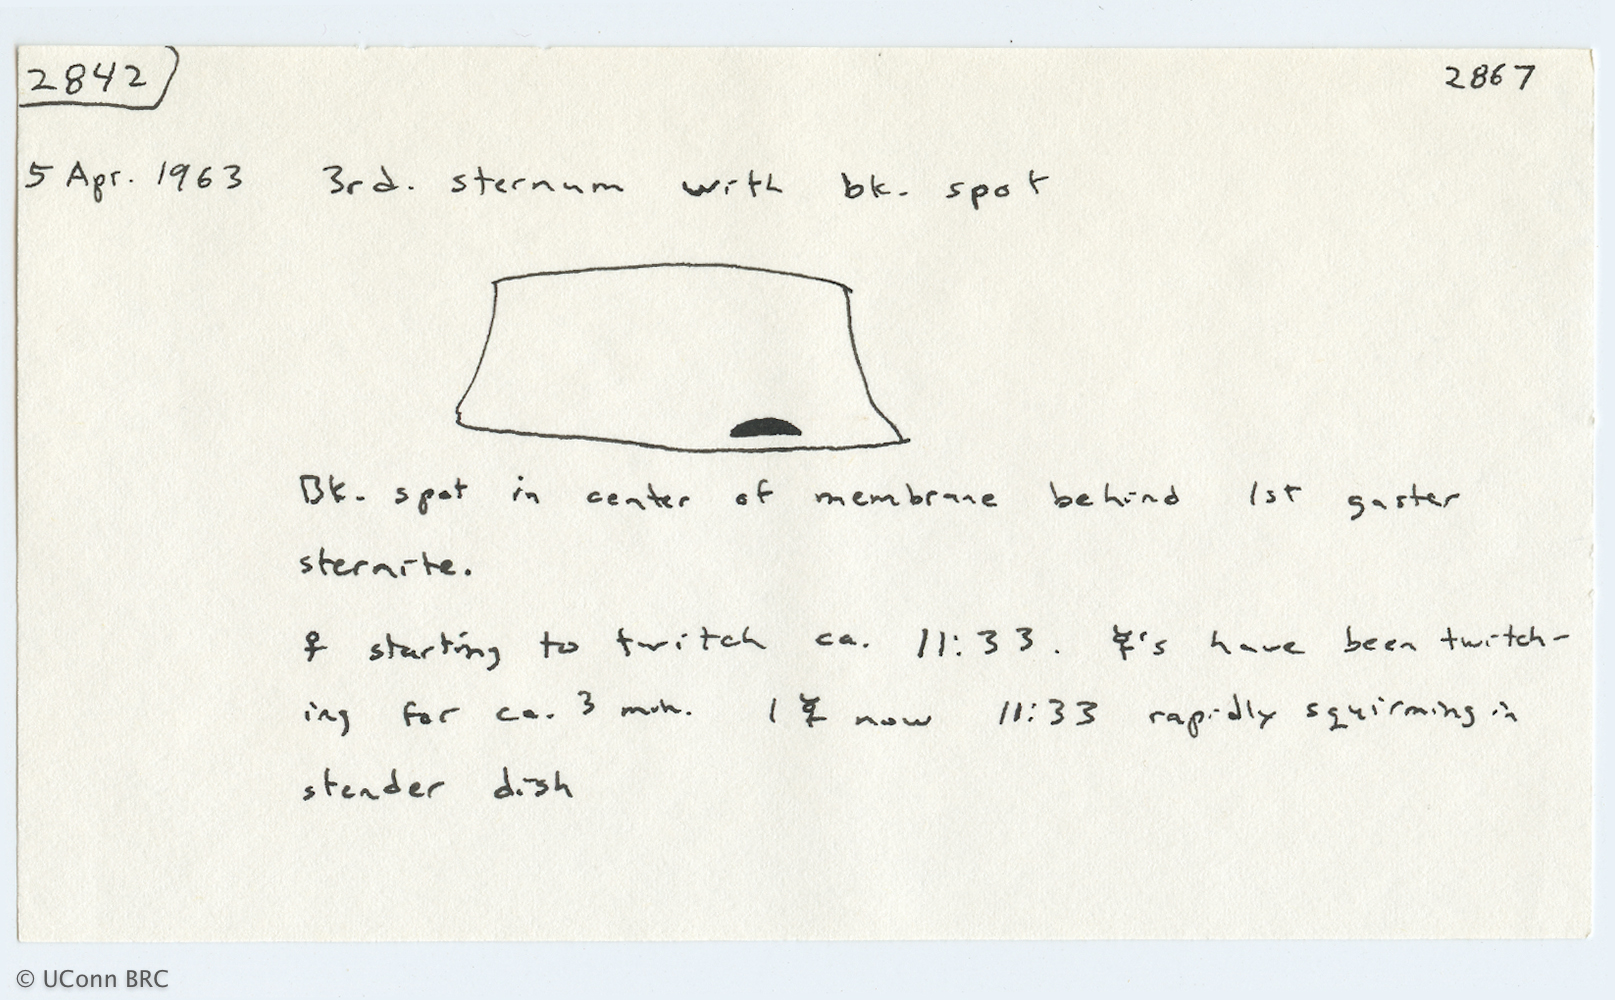 2842
2867
5 Apr. 1963 3rd. sternum with bk. spot
Bk. spot in center of membrane behind 1st gaster
sternite.
♀ starting to twitch ca. 11:33. ☿'s have been twitch-
ing for ca. 3 min. 1 ☿ now 11:33 rapidly squirming in
stender dish
© UConn BRC